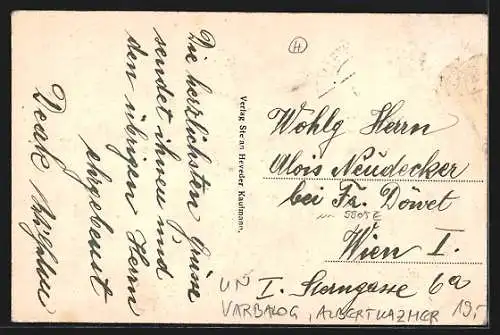 Die herzlichsten Grüsse
sendet ihnen und
den übrigen Herrn
ergebenst
Deak
Verlag Stefan Heveder Kaufmann.
H
Wohlg Herrn
Alois Neudecker
bei Fa. Döwet
Wien I.
I. Sterngasse 6a
UN
VARBALOG, ALBERTKAZMER
19,-